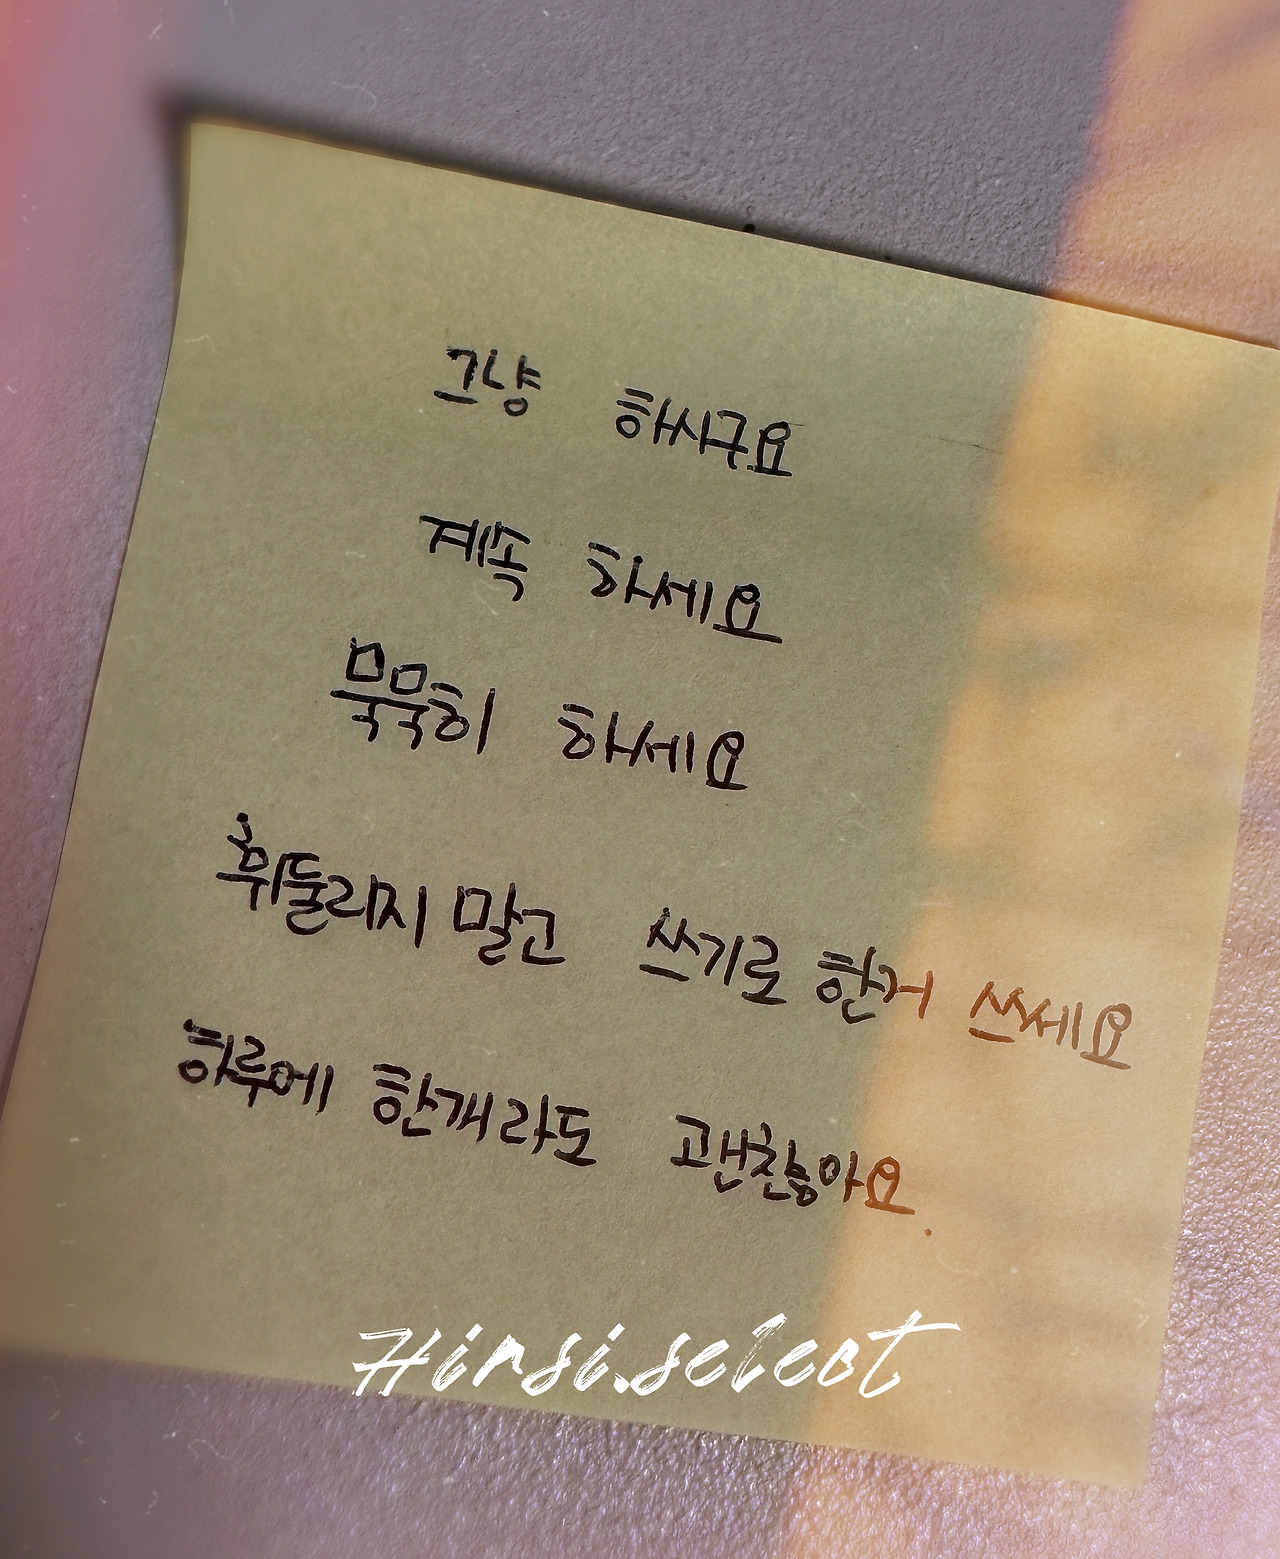 그냥 하시구요
계속 하세요
묵묵히 하세요
휘둘리지 말고 쓰기로 한거 쓰세요
하루에 한개라도 괜찮아요.
Hirsi.select